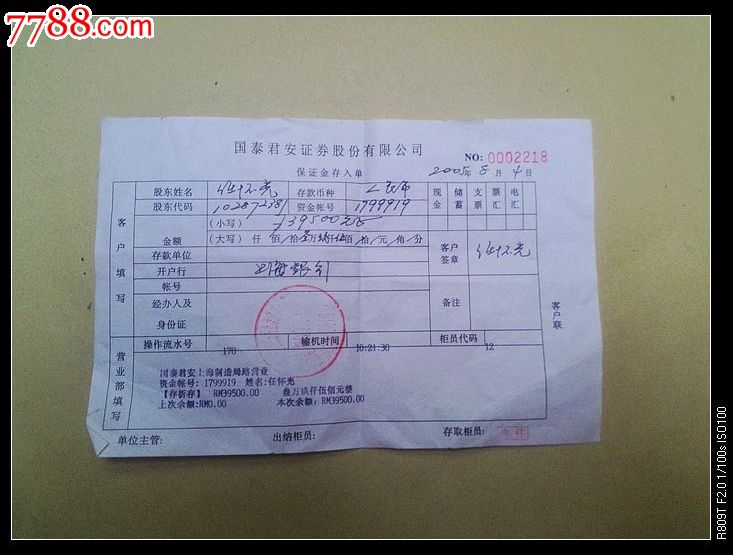 7788.com
国泰君安证券股份有限公司
NO: 0002218
保证金存入单
2005年8月4日
客户填写
股东姓名 任怀光 存款币种 人民币 现金 储蓄 支票 票汇 电汇
股东代码 资金帐号 1799919
(小写) 39500元
金额 (大写) 仟 佰 拾叁万玖仟伍佰 拾 元 角 分
存款单位
客户签章 任怀光
开户行 上海银行
帐号
经办人及身份证
备注
客户联
营业部填写
操作流水号 170 输机时间 10:21:30 柜员代码 12
国泰君安上海制造局路营业
资金帐号: 1799919 姓名:任怀光
【存折存】 RM39500.00 叁万玖仟伍佰元整
上次余额:RM0.00 本次余额: RM39500.00
单位主管: 出纳柜员: 存取柜员:
R809T F2.0 1/100s ISO100